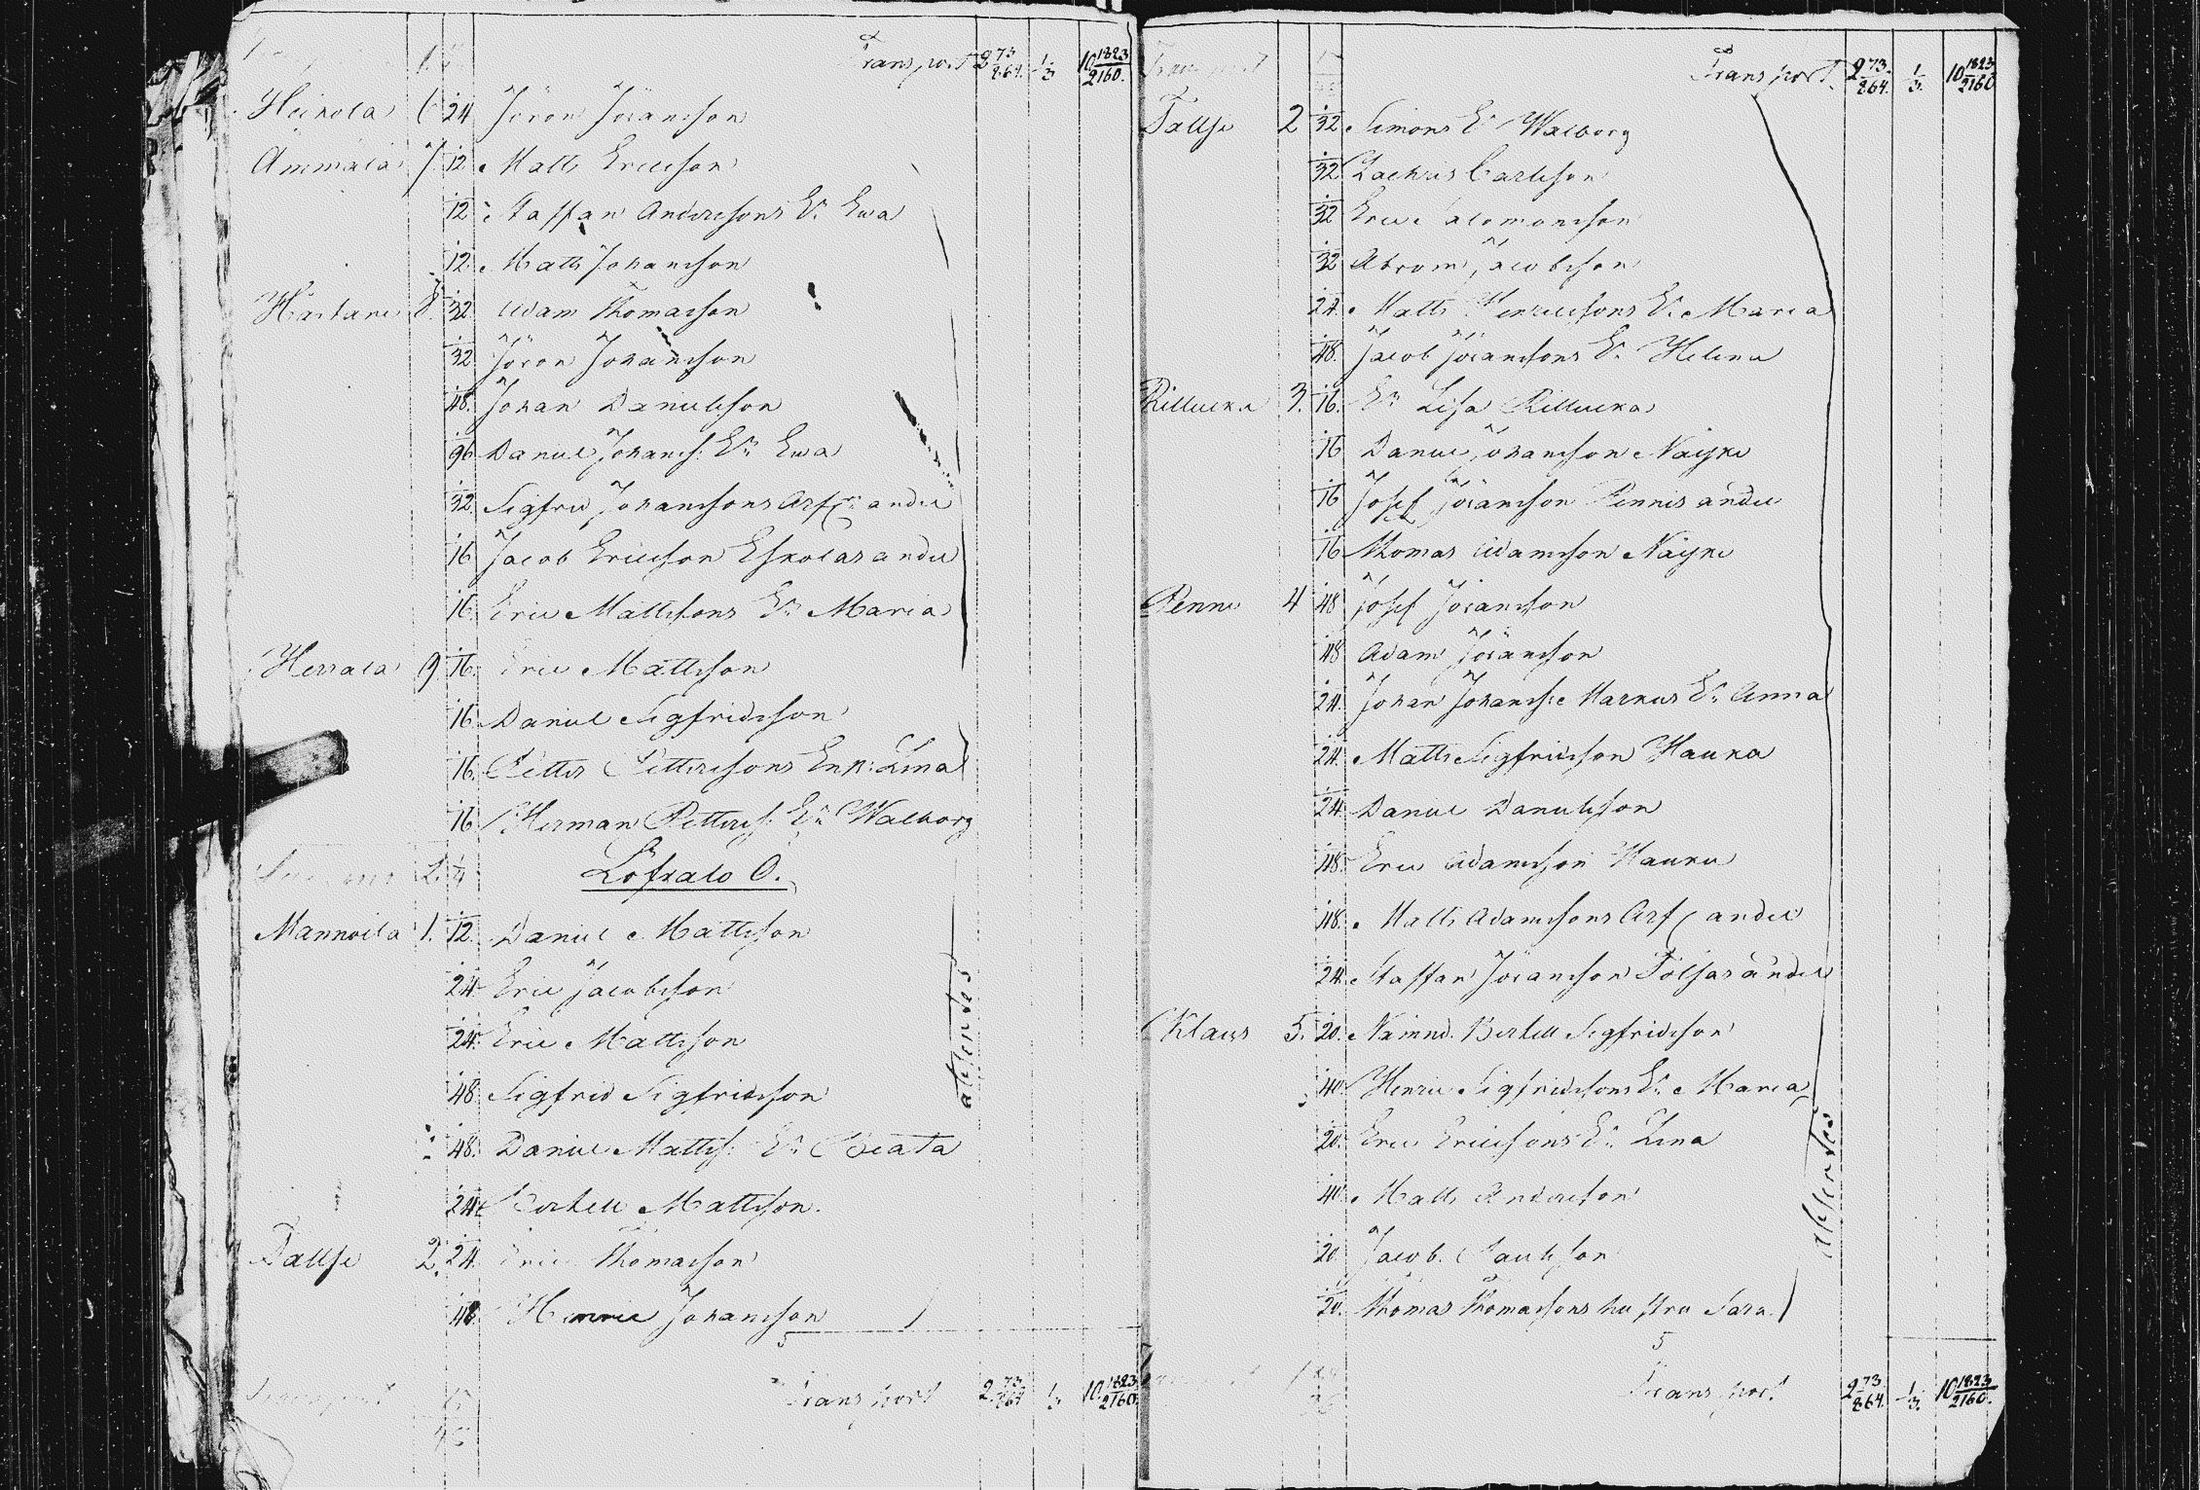 Transport 2 73/864. 1/3 10 1823/2160.
Heikola 6 1/24 Jöran Jöransson
Ammälä 7 1/12 Matts Ericsson
1/12 Staffan Anderssons E:a Ewa
1/12 Matts Johansson
8 1/32 Adam Thomasson
1/32 Jöran Johansson
1/48. Johan Danielsson
1/96 Daniel Johanss: E:a Ewa
1/32 Sigfrid Johanssons Arf: andel
1/16 Jacob Ericsson Eskolas andel
1/16 Eric Mattssons E:a Maria
Herrala 9 1/16 Eric Mattsson
1/16 Daniel Sigfridsson
1/16. Petter Pettersons Enk: Lena
1/16 Herman Petterss: E:a Walborg
Löfralo O.
Mannoila 1. 1/12. Daniel Mattsson
1/24 Eric Jacobsson
1/24 Eric Mattsson
1/48 Sigfrid Sigfridsson
1/48. Daniel Mattss: E:a Beata
1/24 Bertell Mattsson.
Tallse 2. 1/24. Eric Thomasson
1/48 Henric Johansson
afsentes
Transport 2 73/864 1/3 10 1823/2160.
Transport 2 73/864. 1/3. 10 1823/2160
Tallse 2 1/32 Simons E:a Walborg
1/32 Zachris Carlsson
1/32 Eric Salomonsson
1/32 Abram Jacobsson
1/24. Matts Henricssons E:a Maria
1/48. Jacob Jöranssons E:a Helena
Rillucka 3. 1/16. E:a Lisa Rillucka
1/16 Daniel Johansson Näyke
1/16 Josef Jöransson Pennis andel
1/16 Thomas Adamsson Näyke
Penni 4 1/48 Josef Jöransson
1/48 Adam Jöransson
1/24. Johan Johanss: Markus E:a Anna
1/24. Matts Sigfridsson Hauka
1/24 Daniel Danielsson
1/48 Eric Adamsson Hauku
1/48. Matts Adamssons Arf: andel
1/24. Staffan Jöransson Tölsas andel
Klaus 5. 1/20. Nämnd. Bertell Sigfridsson
1/40 Henric Sigfridssons E:a Maria
1/20. Eric Ericssons E:a Lena
1/40 Matts Andersson
1/20 Jacob Paulsson
1/20. Thomas Thomassons hustru Sara.
afsentes
Transport 2 73/864. 1/3. 10 1823/2160.